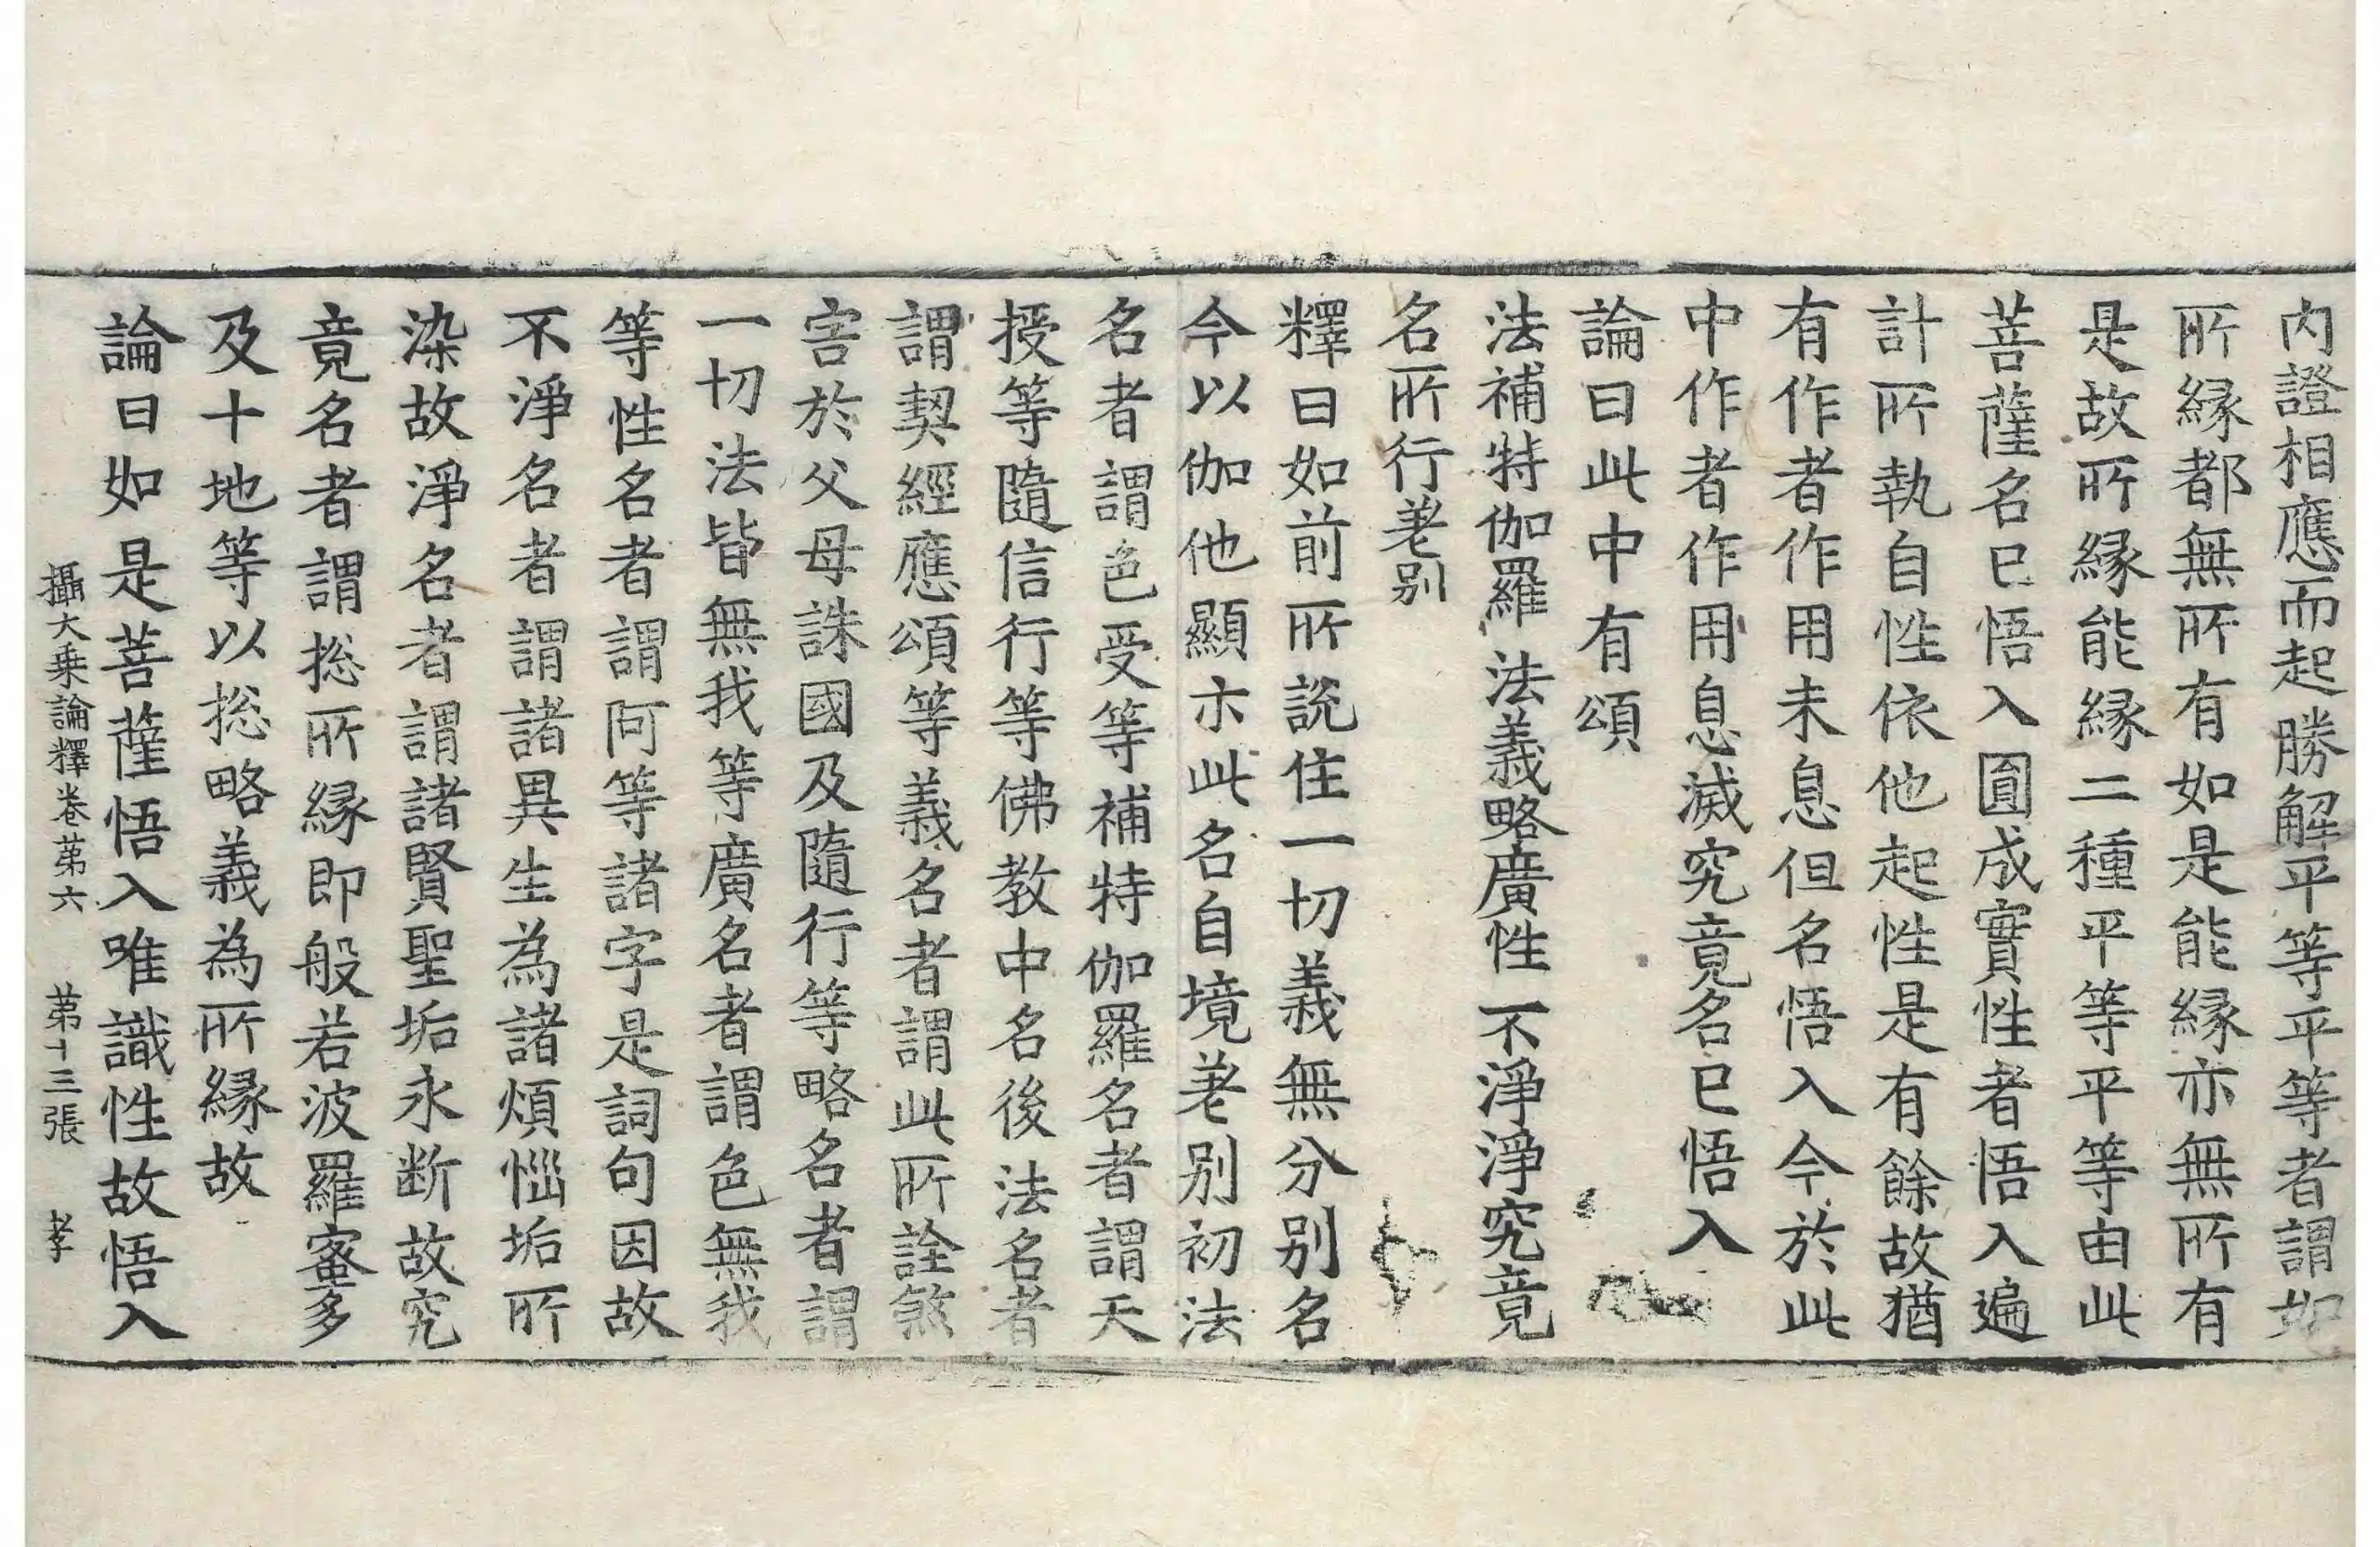 內證相應而起勝解平等平等者謂如
所緣都無所有如是能緣亦無所有
是故所緣能緣二種平等平等由此
菩薩名已悟入圓成實性者悟入遍
計所執自性依他起性是有餘故猶
有作者作用未息但名悟入今於此
中作者作用息滅究竟名已悟入
論曰此中有頌
法補特伽羅 法義略廣性 不淨淨究竟
名所行差別
釋曰如前所說住一切義無分別名
今以伽他顯示此名自境差別初法
名者謂色受等補特伽羅名者謂天
授等隨信行等佛教中名後法名者
謂契經應頌等義名者謂此所詮煞
害於父母誅國及隨行等略名者謂
一切法皆無我等廣名者謂色無我
等性名者謂阿等諸字是詞句因故
不淨名者謂諸異生為諸煩惱垢所
染故淨名者謂諸賢聖垢永断故究
竟名者謂捴所緣即般若波羅蜜多
及十地等以捴略義為所緣故
論曰如是菩薩悟入唯識性故悟入
攝大乘論釋卷苐六 苐十三張 孝